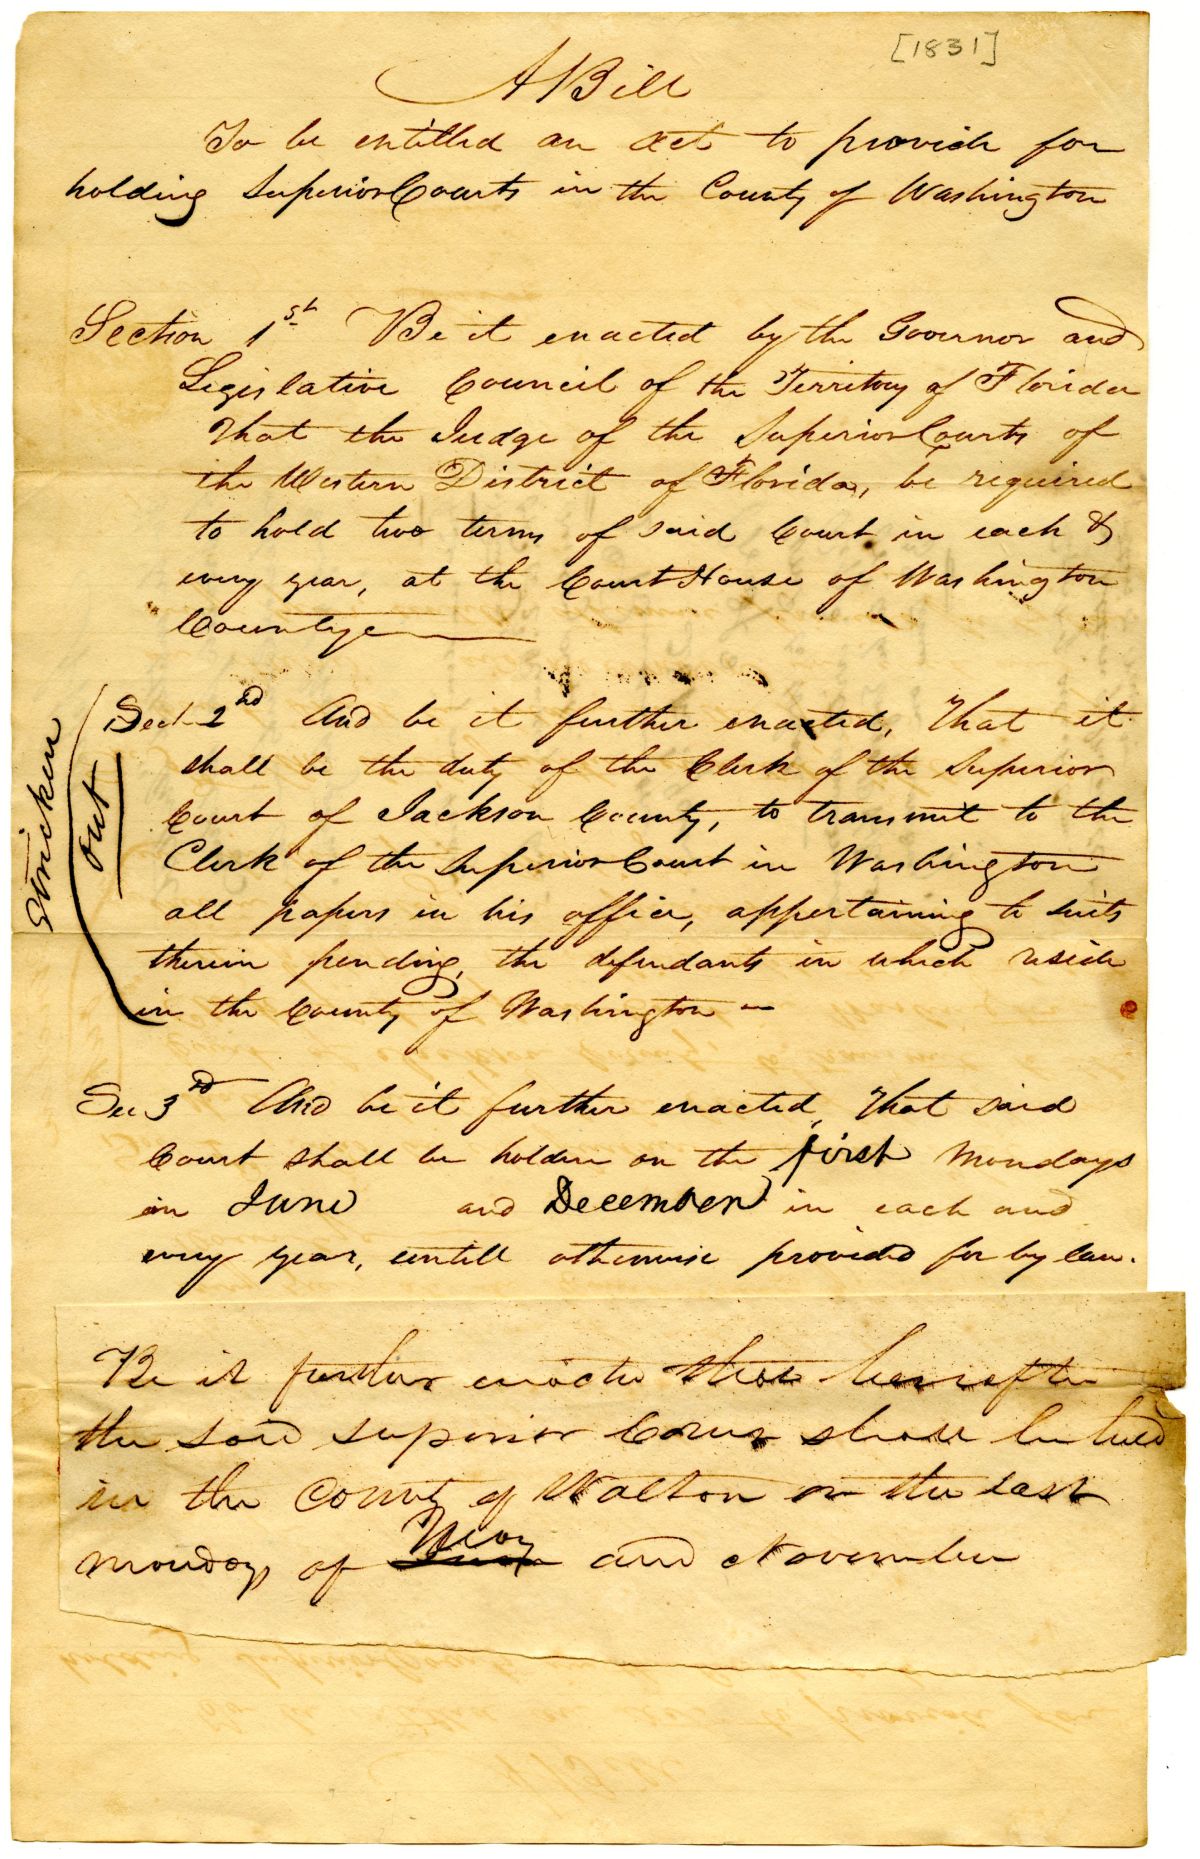 [1831]
A Bill
To be entitled an act to provide for
holding Superior Courts in the County of Washington
Section 1st Be it enacted by the Governor and
Legislative Council of the Territory of Florida
That the Judge of the Superior Courts of
the Western District of Florida, be required
to hold two terms of said Court in each &
every year, at the Court House of Washington
County
Stricken
out
Sect. 2nd And be it further enacted, That it
shall be the duty of the Clerk of the Superior
Court of Jackson County, to transmit to the
Clerk of the Superior Court in Washington
all papers in his office, appertaining to suits
therein pending, the defendants in which reside
in the County of Washington
Sec 3rd And be it further enacted, That said
Court shall be holden on the first Mondays
in June and December in each and
every year, untill otherwise provided for by law.
Be it further enacted that hereafter
the said superior Court shall be held
in the County of Walton on the last
mondays of May and November